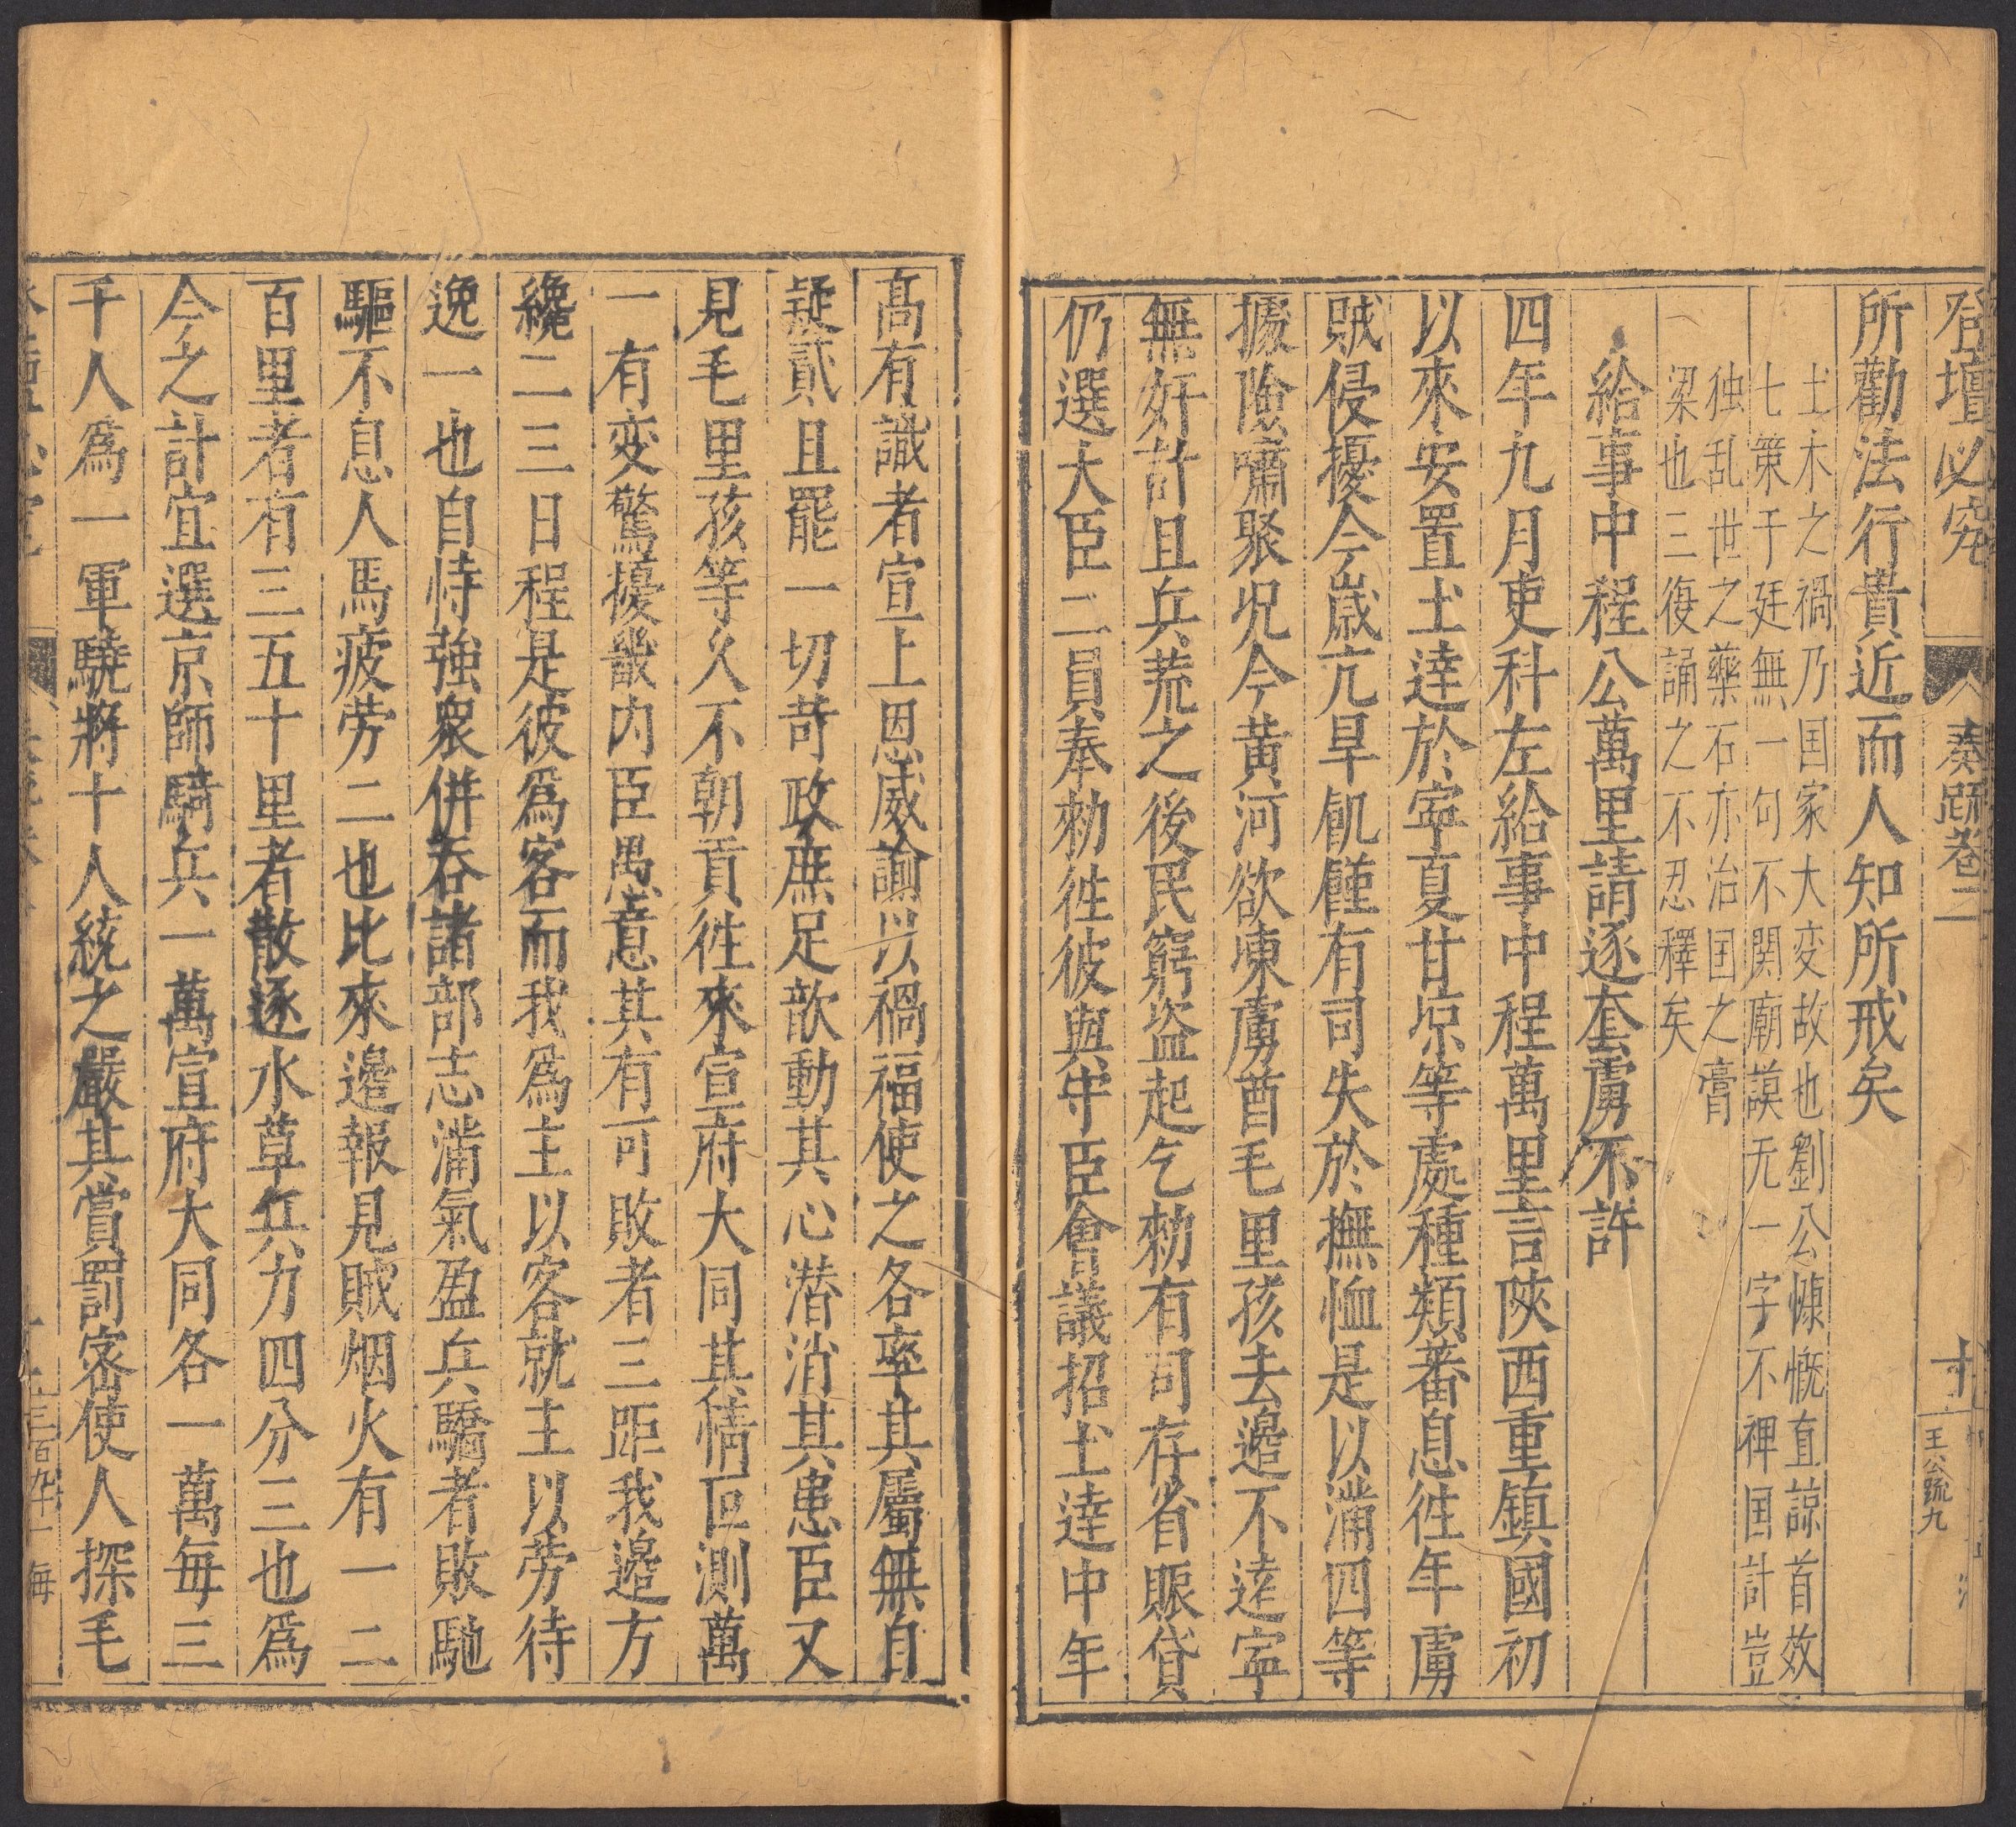 登壇必究
奏䟽卷二
十
王公䟽九
所勸法行貴近而人知所戒矣
土木之禍乃国家大变故也劉公慷慨直諒首效
七策于廷無一句不関廟謨无一字不裨国計豈
独乱世之藥石亦治国之膏
梁也三復誦之不忍釋矣
給事中程公萬里請逐套虜不許
四年九月吏科左給事中程萬里言陝西重鎮國初
以來安置土達於寧夏甘凉等處種類蕃息徃年虜
賊侵擾今歲亢旱飢饉有司失於撫恤是以滿四等
據險嘯聚况今黃河欲凍虜酋毛里孩去邉不遠寧
無奸計且兵荒之後民窮盗起乞勑有司存省賑貸
仍選大臣二員奉勑徃彼與守臣會議招土達中年
高有識者宣上恩威諭以禍福使之各率其屬無自
疑貳且罷一切苛政庶足歆動其心潛消其患臣又
見毛里孩等久不朝貢徃來宣府大同其情叵測萬
一有变驚擾畿内臣愚意其有可敗者三距我邉方
纔二三日程是彼爲客而我爲主以客就主以勞待
逸一也自恃強衆併吞諸部志滿氣盈兵驕者敗馳
驅不息人馬疲劳二也比來邉報見賊烟火有一二
百里者有三五十里者散逐水草兵力四分三也爲
今之計宜選京師騎兵一萬宣府大同各一萬毎三
千人爲一軍驍將十人統之嚴其賞罰密使人探毛